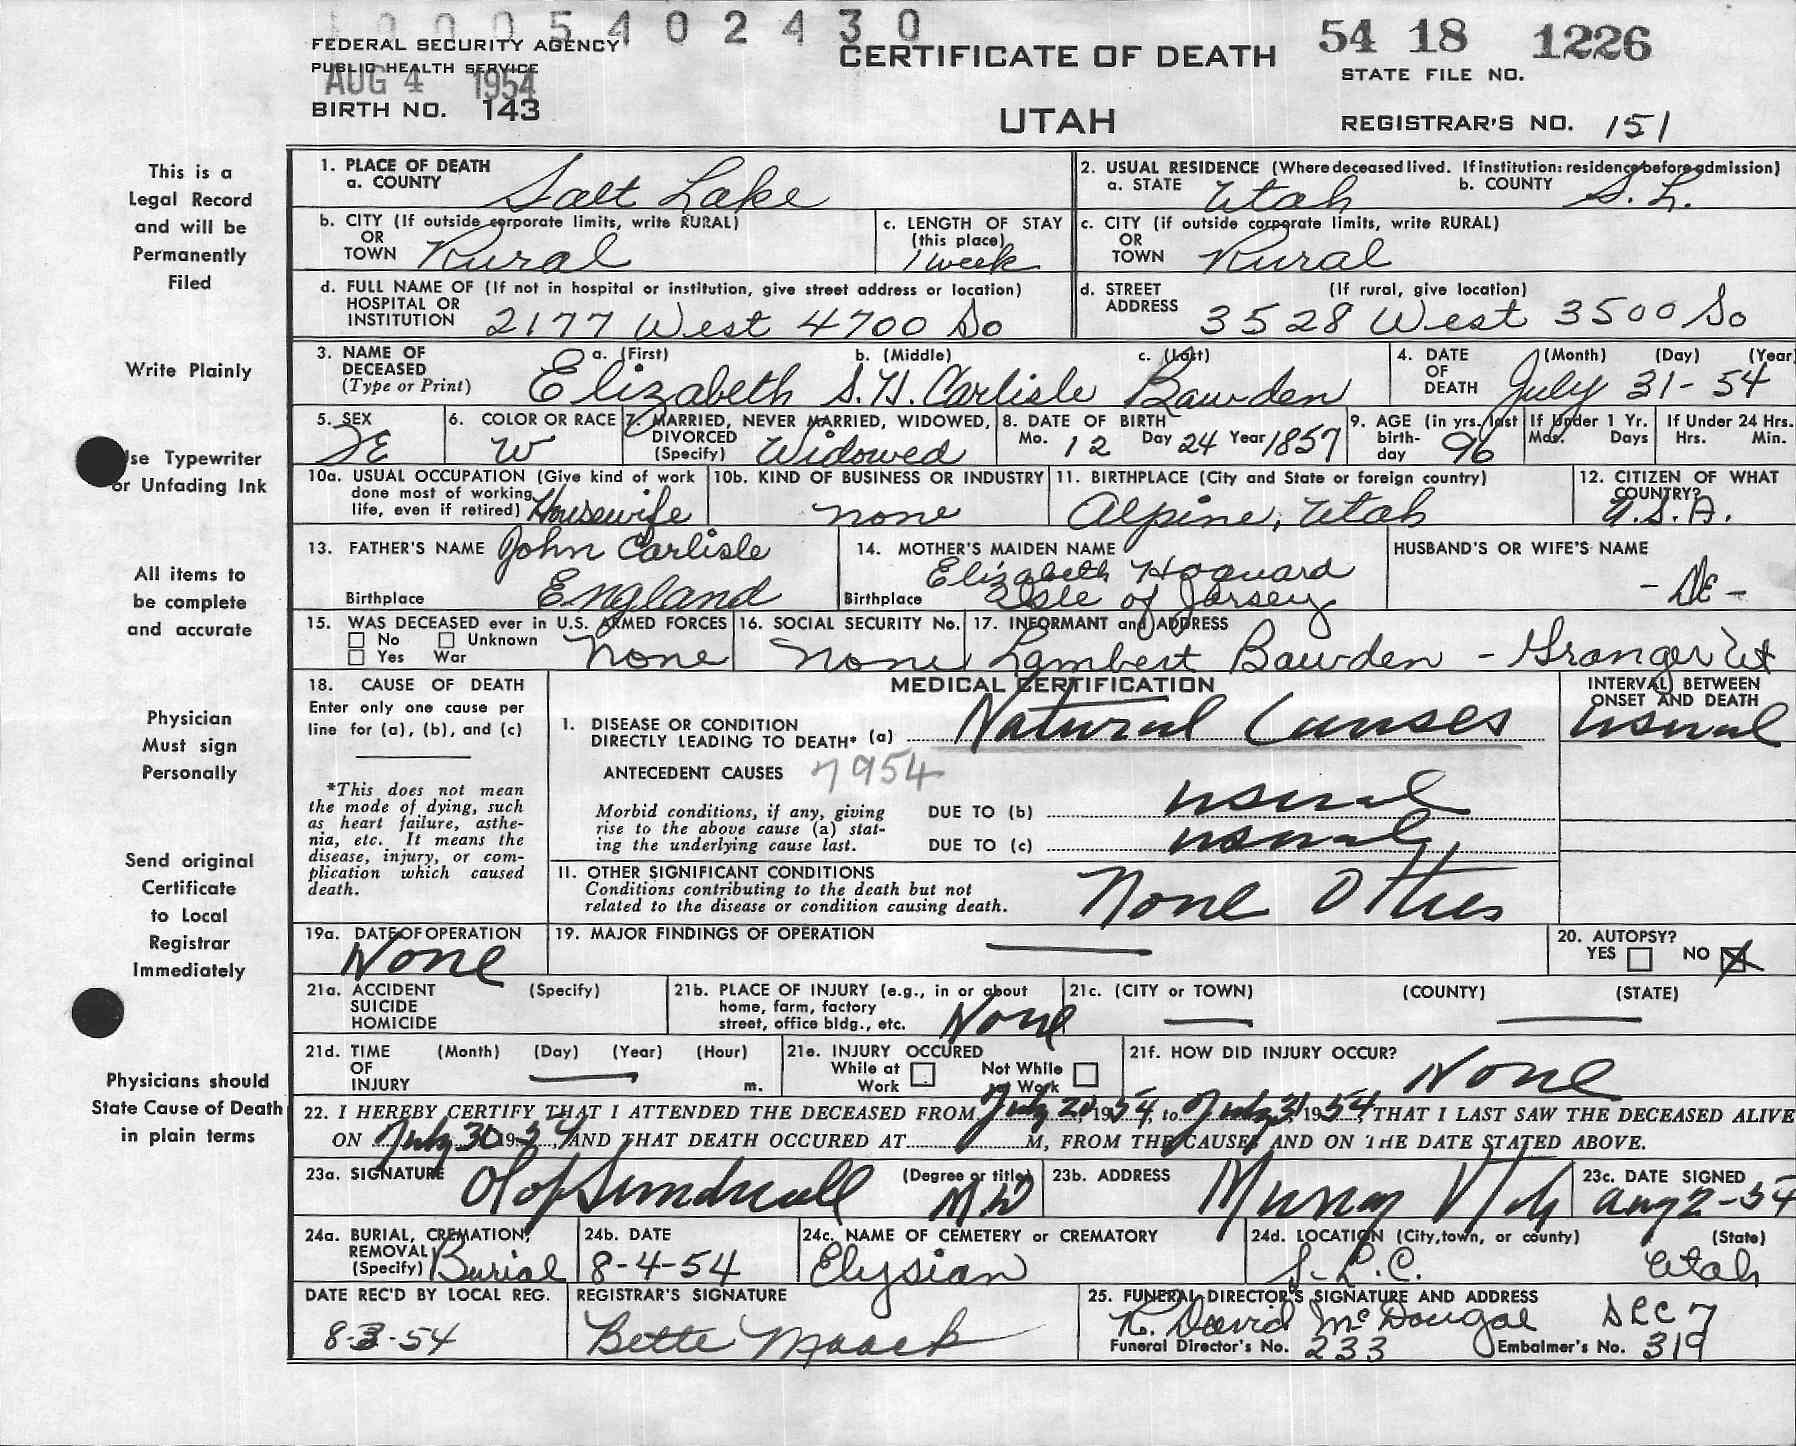 1 0 0 0 5 4 0 2 4 3 0
FEDERAL SECURITY AGENCY
PUBLIC HEALTH SERVICE
AUG 4 1954
BIRTH NO. 143
CERTIFICATE OF DEATH
UTAH
54 18 1226
STATE FILE NO.
REGISTRAR'S NO. 151
This is a
Legal Record
and will be
Permanently
Filed
Write Plainly
Use Typewriter
or Unfading Ink
All items to
be complete
and accurate
Physician
Must sign
Personally
Send original
Certificate
to Local
Registrar
Immediately
Physicians should
State Cause of Death
in plain terms
1. PLACE OF DEATH
a. COUNTY Salt Lake
2. USUAL RESIDENCE (Where deceased lived. If institution: residence before admission)
a. STATE Utah b. COUNTY S.L.
b. CITY (If outside corporate limits, write RURAL)
OR
TOWN Rural
c. LENGTH OF STAY
(this place)
1 week
c. CITY (if outside corporate limits, write RURAL)
OR
TOWN Rural
d. FULL NAME OF (If not in hospital or institution, give street address or location)
HOSPITAL OR
INSTITUTION 2177 West 4700 So
d. STREET (If rural, give location)
ADDRESS 3528 West 3500 So
3. NAME OF DECEASED
(Type or Print)
a. (First) b. (Middle) c. (Last)
Elizabeth S.H. Carlisle Bawden
4. DATE OF DEATH (Month) (Day) (Year)
July 31-54
5. SEX
FE
6. COLOR OR RACE
W
7. MARRIED, NEVER MARRIED, WIDOWED,
DIVORCED
(Specify) Widowed
8. DATE OF BIRTH
Mo. 12 Day 24 Year 1857
9. AGE (in yrs. last
birth-
day 96
If Under 1 Yr.
Mos. Days
If Under 24 Hrs.
Hrs. Min.
10a. USUAL OCCUPATION (Give kind of work
done most of working
life, even if retired) Housewife
10b. KIND OF BUSINESS OR INDUSTRY
none
11. BIRTHPLACE (City and State or foreign country)
Alpine, Utah
12. CITIZEN OF WHAT
COUNTRY?
U.S.A.
13. FATHER'S NAME John Carlisle
Birthplace England
14. MOTHER'S MAIDEN NAME
Elizabeth Hoguard
Birthplace Isle of Jersey
HUSBAND'S OR WIFE'S NAME
- DE -
15. WAS DECEASED ever in U.S. ARMED FORCES
No Unknown
Yes War
none
16. SOCIAL SECURITY No.
none
17. INFORMANT and ADDRESS
Lambert Bawden - Granger Ut
18. CAUSE OF DEATH
Enter only one cause per
line for (a), (b), and (c)
*This does not mean
the mode of dying, such
as heart failure, asthe-
nia, etc. It means the
disease, injury, or com-
plication which caused
death.
MEDICAL CERTIFICATION
INTERVAL BETWEEN
ONSET AND DEATH
1. DISEASE OR CONDITION
DIRECTLY LEADING TO DEATH* (a) Natural Causes usual
ANTECEDENT CAUSES 7954
Morbid conditions, if any, giving
rise to the above cause (a) stat-
ing the underlying cause last.
DUE TO (b) usual
DUE TO (c) usual
11. OTHER SIGNIFICANT CONDITIONS
Conditions contributing to the death but not
related to the disease or condition causing death.
None
19a. DATE OF OPERATION
None
19. MAJOR FINDINGS OF OPERATION
20. AUTOPSY?
YES NO X
21a. ACCIDENT (Specify)
SUICIDE
HOMICIDE
21b. PLACE OF INJURY (e.g., in or about
home, farm, factory
street, office bldg., etc. None
21c. (CITY or TOWN) (COUNTY) (STATE)
21d. TIME (Month) (Day) (Year) (Hour)
OF
INJURY m.
21e. INJURY OCCURED
While at Work
Not While at Work
21f. HOW DID INJURY OCCUR?
None
22. I HEREBY CERTIFY THAT I ATTENDED THE DECEASED FROM July 20, 1954, to July 31 1954, THAT I LAST SAW THE DECEASED ALIVE
ON July 30 1954, AND THAT DEATH OCCURED AT M, FROM THE CAUSES AND ON THE DATE STATED ABOVE.
23a. SIGNATURE (Degree or title)
Olof Sundwall M.D
23b. ADDRESS
Murray Utah
23c. DATE SIGNED
Aug 2-54
24a. BURIAL, CREMATION,
REMOVAL
(Specify) Burial
24b. DATE
8-4-54
24c. NAME OF CEMETERY or CREMATORY
Elysian
24d. LOCATION (City, town, or county) (State)
S.L.C. Utah
DATE REC'D BY LOCAL REG.
8-3-54
REGISTRAR'S SIGNATURE
Bette Maack
25. FUNERAL DIRECTOR'S SIGNATURE AND ADDRESS
R. David McDougal SLC 7
Funeral Director's No. 233 Embalmer's No. 319